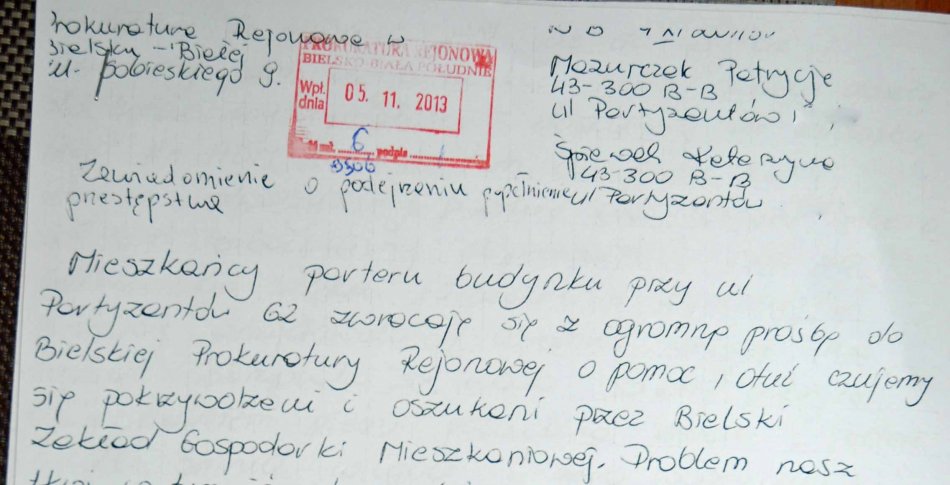 Prokuratura Rejonowa w
Bielsku-Białej
ul. Sobieskiego 9.
PROKURATURA REJONOWA
BIELSKO-BIAŁA POŁUDNIE
Wpł.
dnia
05. 11. 2013
zał. 6 podpis
Mazurczak Patrycja
43-300 B-B
ul Partyzantów
Śpiewak Katarzyna
43-300 B-B
ul Partyzantów
Zawiadomienie o podejrzeniu popełnienie
przestępstwa
Mieszkańcy parteru budynku przy ul
Partyzantów 62 zwracają się z ogromną prośbą do
Bielskiej Prokuratury Rejonowej o pomoc, otuż czujemy
się pokrzywdzeni i oszukani przez Bielski
Zakład Gospodarki Mieszkaniowej. Problem nasz